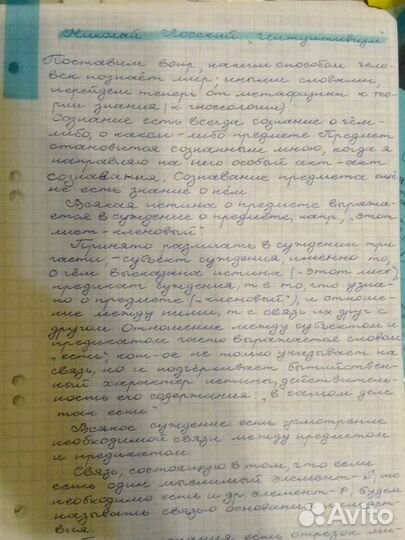 Николай Лосский "Интуитивизм"
Поставим вопр, каким способом чело-
век познаёт мир; иными словами,
перейдем теперь от метафизики к тео-
рии знания (к гносеологии)
Сознание есть всегда сознание о чём-
либо, о каком-либо предмете. Предмет
становится сознанным мною, когда я
направляю на него особый акт - акт
сознавания. Сознавание предмета ещё
не есть знание о нём.
Всякая истина о предмете выража-
ется в суждение о предмете, напр, "этот
лист - кленовый".
Принято различать в суждении три
части, - субъект суждения, именно то,
о чём высказана истина ("этот лист"),
предикат суждения, т е то, что узна-
но о предмете ("кленовый"), и отноше-
ние между ними, т е связь их друг с
другом. Отношение между субъектом и
предикатом часто выражается словом
"есть", кот-ое не только указывает на
связь, но и подчёркивает бытийствен-
ный характер истины, действитель-
ность его содержания: "в самом деле
так есть"
Всякое суждение есть усмотрение
необходимой связи между предметом
и предикатом.
Связь, состоящую в том, что если
есть один мыслимый элемент - , то
необходимо есть и др элемент - P, будем
называть связью основания и следст-
вия
знания, есть отрезок ми-
Avito